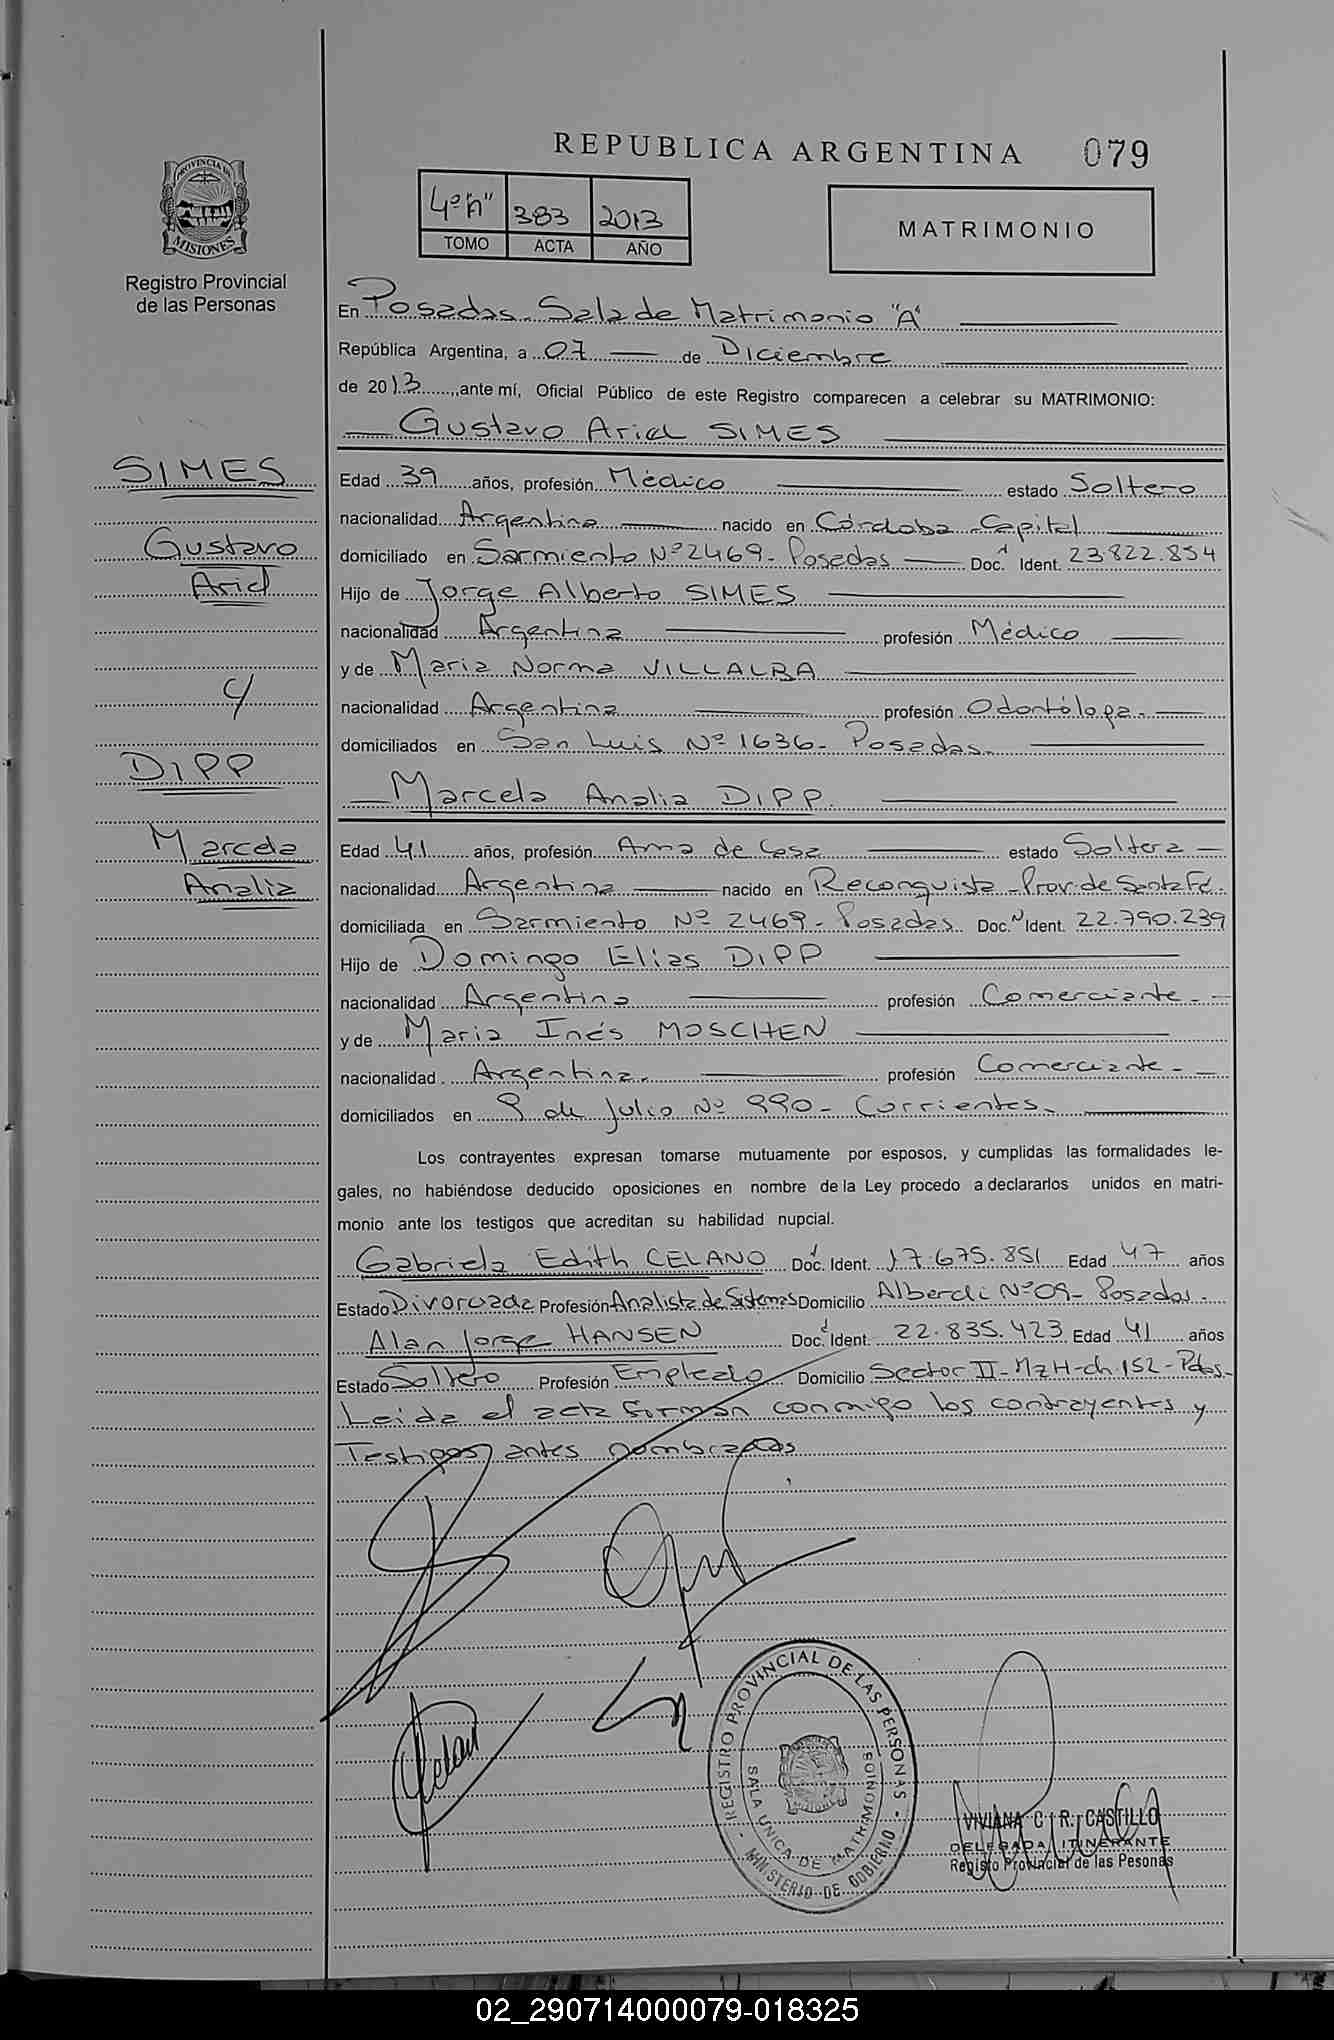 REPUBLICA ARGENTINA 079
PROVINCIA DE
MISIONES
Registro Provincial
de las Personas
4º "A" 383 2013
TOMO ACTA AÑO
MATRIMONIO
En Posadas. Sala de Matrimonio "A"
República Argentina, a 07 de Diciembre
de 2013, ante mí, Oficial Público de este Registro comparecen a celebrar su MATRIMONIO:
Gustavo Ariel SIMES
SIMES
Gustavo
Ariel
c/
DIPP
Marcela
Analia
Edad 39 años, profesión Médico estado Soltero
nacionalidad Argentina nacido en Córdoba Capital
domiciliado en Sarmiento Nº 2469- Posadas Doc. Ident. 23.822.854
Hijo de Jorge Alberto SIMES
nacionalidad Argentina profesión Médico
y de Maria Norma VILLALBA
nacionalidad Argentina profesión Odontóloga.
domiciliados en San Luis Nº 1636- Posadas.
Marcela Analia DIPP.
Edad 41 años, profesión Ama de Casa estado Soltera
nacionalidad Argentina nacido en Reconquista - Prov. de Santa Fé.
domiciliada en Sarmiento Nº 2469- Posadas Doc. Ident. 22.790.239
Hijo de Domingo Elias DIPP
nacionalidad Argentina profesión Comerciante-
y de Maria Inés MOSCHEN
nacionalidad Argentina. profesión Comerciante-
domiciliados en 9 de Julio Nº 990- Corrientes.
Los contrayentes expresan tomarse mutuamente por esposos, y cumplidas las formalidades le-
gales, no habiéndose deducido oposiciones en nombre de la Ley procedo a declararlos unidos en matri-
monio ante los testigos que acreditan su habilidad nupcial.
Gabriela Edith CELANO Doc. Ident. 17.675.851 Edad 47 años
Estado Divorciada Profesión Analista de Sistemas Domicilio Alberdi Nº 09- Posadas.
Alan Jorge HANSEN Doc. Ident. 22.835.423 Edad 41 años
Estado Soltero Profesión Empleado Domicilio Sector II-Mz H-ch.152-Pdas.
Leida el acta firman conmigo los contrayentes y
Testigos antes nombrados
REGISTRO PROVINCIAL DE LAS PERSONAS
SALA UNICA DE MATRIMONIOS
- MINISTERIO DE GOBIERNO -
VIVIANA C. R. CASTILLO
DELEGADA ITINERANTE
Registo Provincial de las Pesonas
02_290714000079-018325